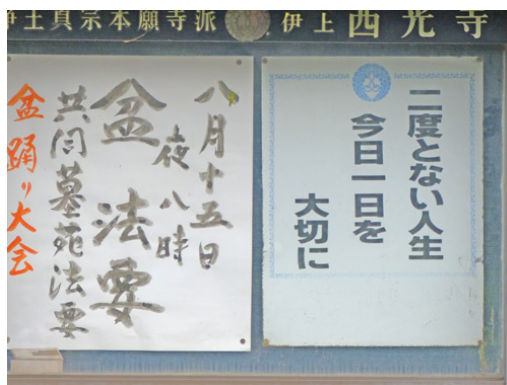 浄土真宗本願寺派 伊上 西光寺
二度とない人生
今日一日を
大切に
八月十五日
夜八時
盆法要
共同墓苑法要
盆踊り大会